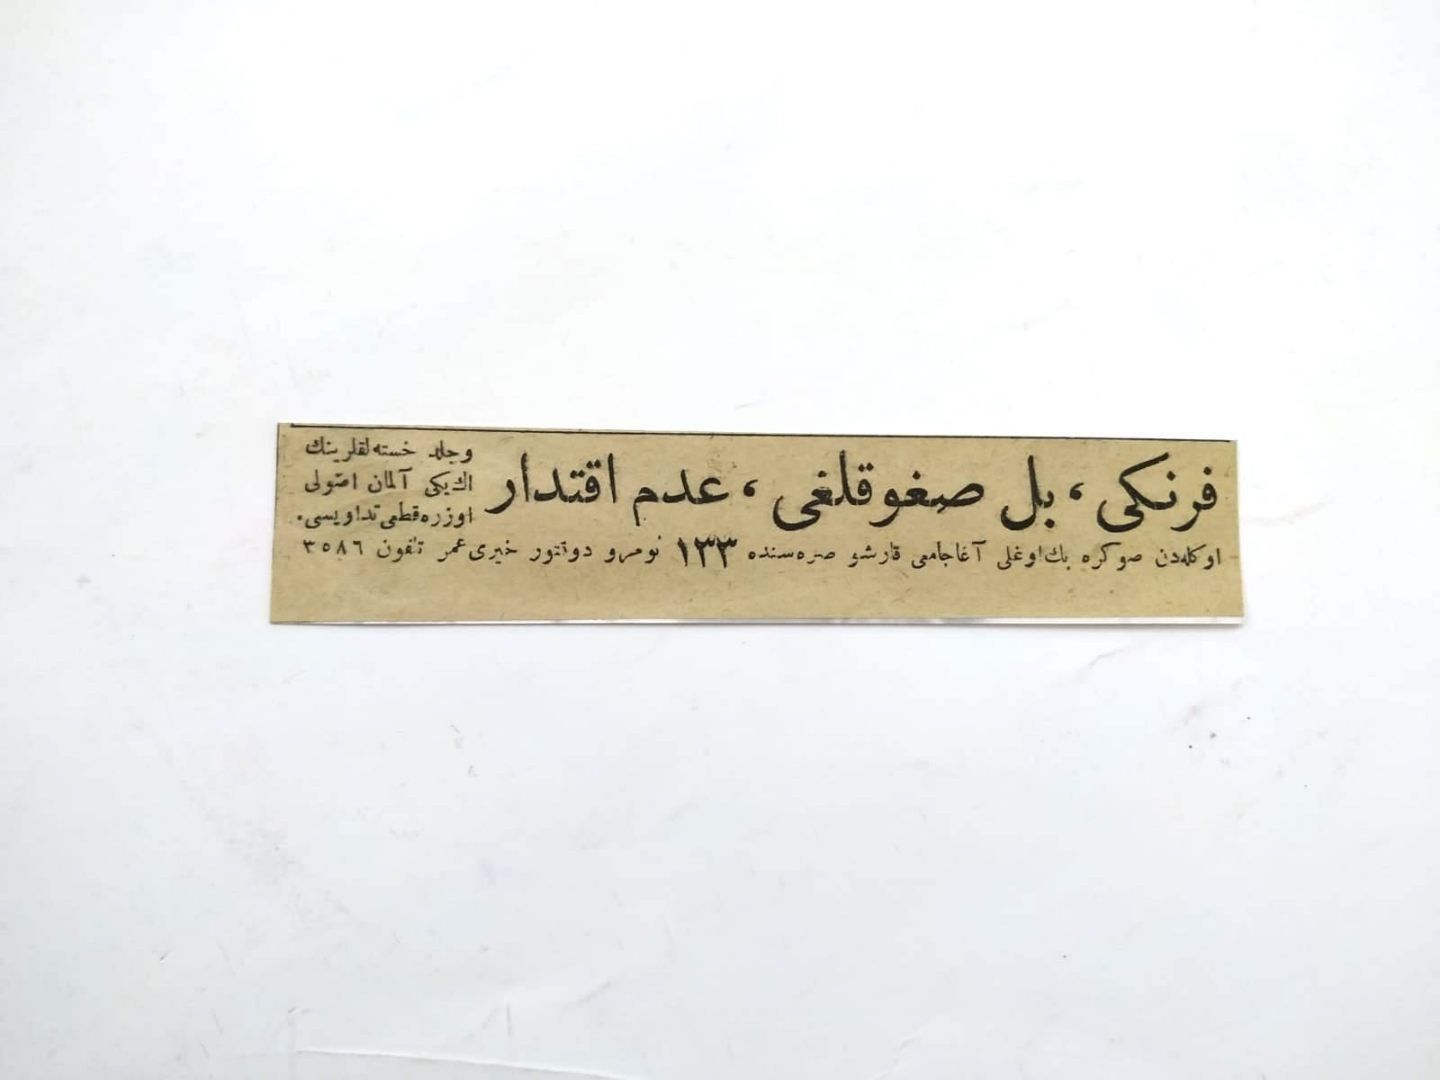 فرنكی ، بل صغوقلغی ، عدم اقتدار
وجلد خسته‌لقلرینك
اك یكی آلمان اصولی
اوزره قطعی تداویسی.
اوكله‌دن صوكره بك اوغلی آغاجامعی قارشو صره‌سنده ١٣٣ نومرو دوقتور خیری عمر تلفون ٣٥٨٦